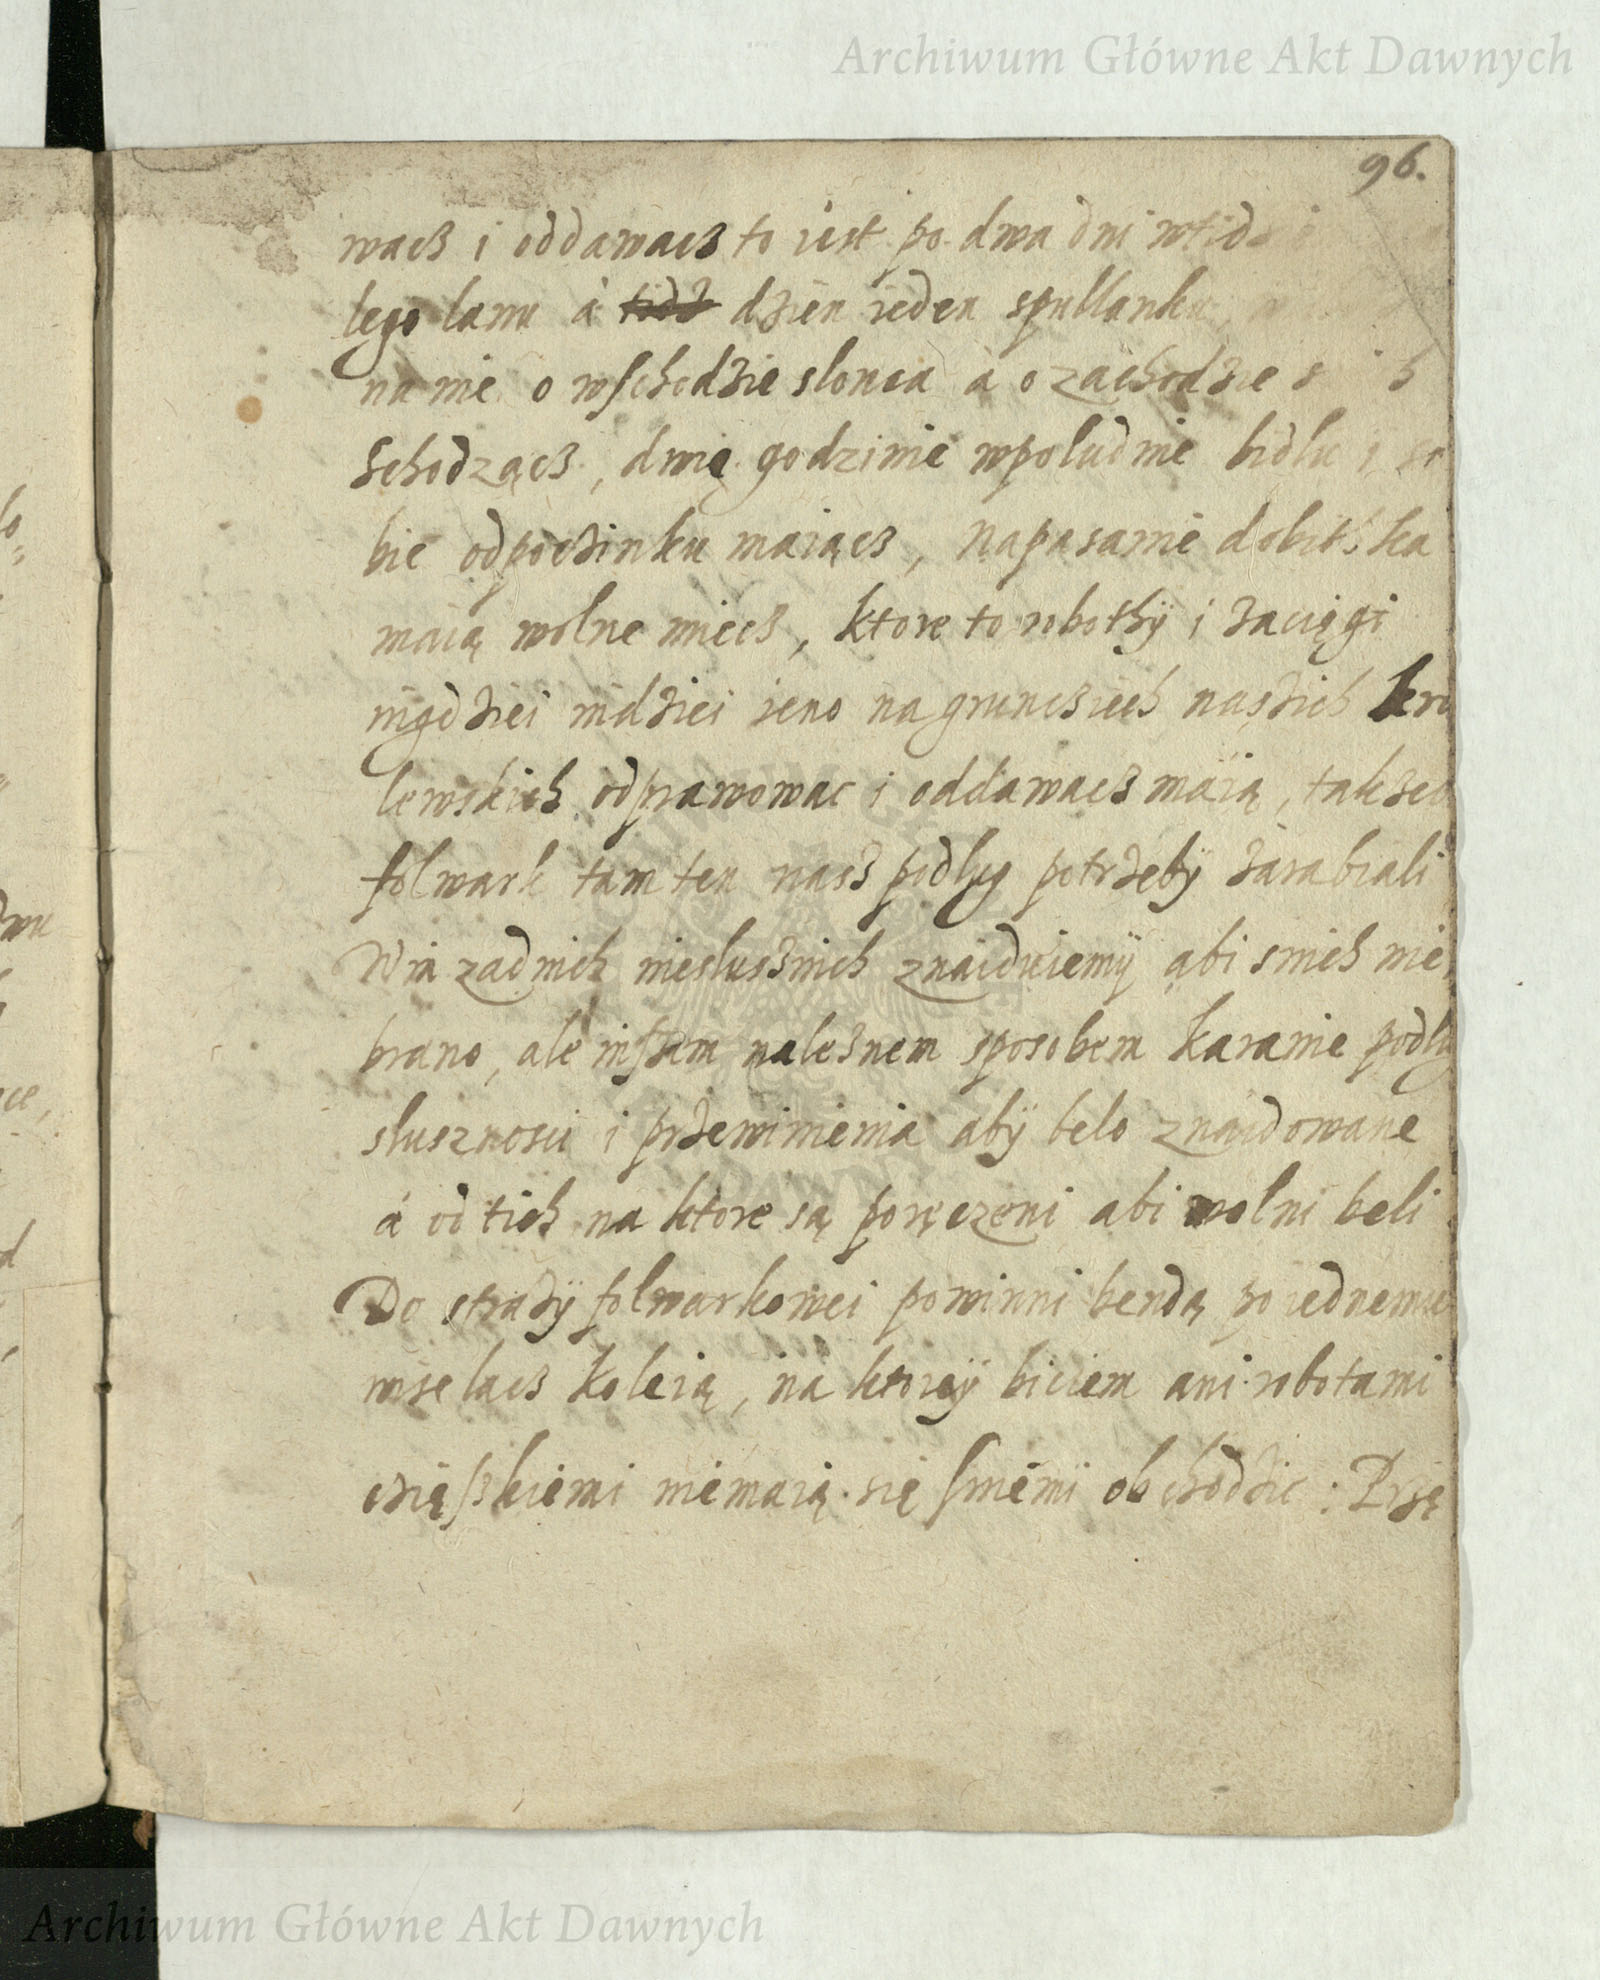 Archiwum Główne Akt Dawnych
96.
wacz i oddawacz to iest po dwa dni
lego lanu á tidz dzien ieden spullanku
na nie o wschodzie slonca a o zachodzie
schodzącz, dwie godzinie wpoludnie bidlu i so
bie odpoczinku maiącz, Napasanie dobitka
maią wolne miecz, ktore to robothÿ i zaciągi
nigdziei indziei ieno na grunciech naszich kro
lewskich odprawowac i oddawacz maią, takzeb
folwark tam ten nasz podlug potrzebÿ zarabiali
Win zadnich nieslusznich znaiduiemÿ abi snich nie
brano, ale inszem naleznem sposobem karanie podlu
slusznosci i przewinienia abÿ belo znaidowane
á od tich na ktore są poręczeni abi wolni beli
Do strazÿ folwarkowei powinni bendą po iednemu
wselacz koleią, na ktoreÿ biciem ani robotami
czięszkiemi niemaią się sniemi obchodzic: Przę
Archiwum Główne Akt Dawnych